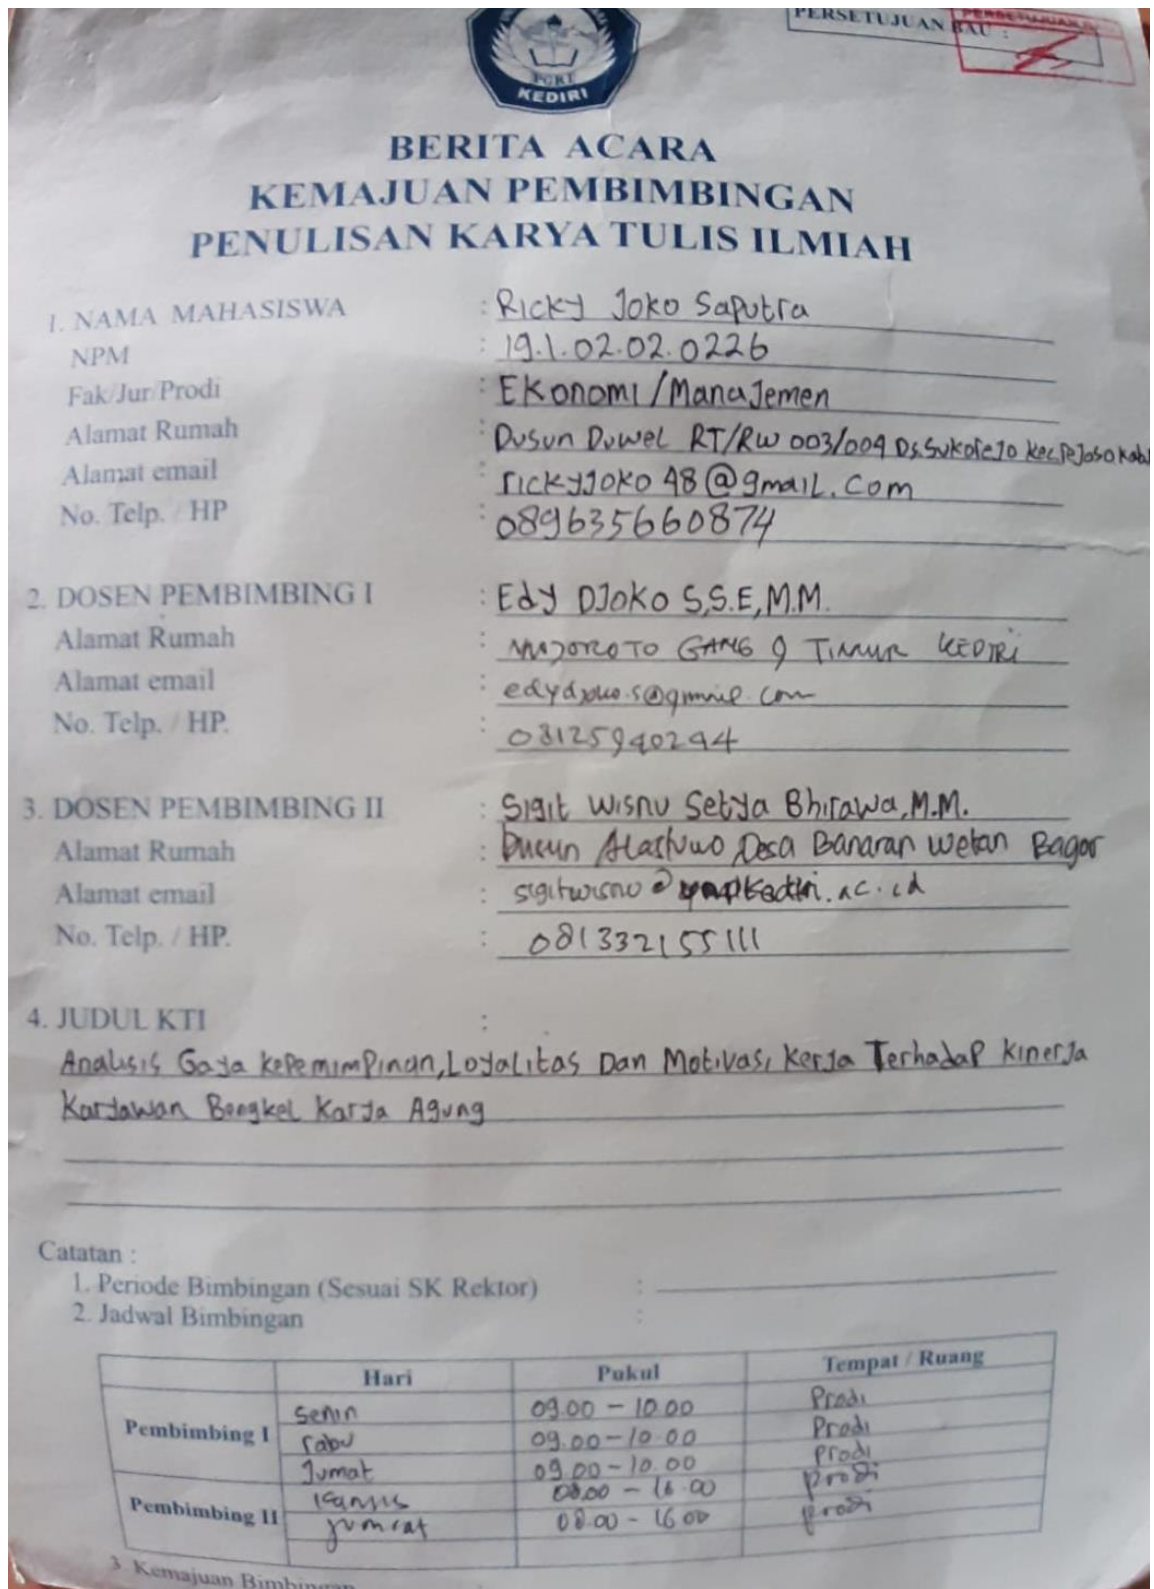 PGRI
KEDIRI
PERSETUJUAN BAU :
BERITA ACARA
KEMAJUAN PEMBIMBINGAN
PENULISAN KARYA TULIS ILMIAH
1. NAMA MAHASISWA : Ricky Joko Saputra
NPM : 19.1.02.02.0226
Fak/Jur/Prodi : Ekonomi/Manajemen
Alamat Rumah : Dusun Duwel RT/RW 003/009 Ds.Sukorejo Kec.Rejoso Kab
Alamat email : rickyjoko48@gmail.com
No. Telp. / HP : 089635660874
2. DOSEN PEMBIMBING I : Edy Djoko S,S.E,M.M.
Alamat Rumah : MOJOROTO GANG 9 TIMUR KEDIRI
Alamat email : edydjoko.s@gmail.com
No. Telp. / HP. : 08125940294
3. DOSEN PEMBIMBING II : Sigit Wisnu Setya Bhirawa,M.M.
Alamat Rumah : Dusun Alastuwo Desa Banaran Wetan Bagor
Alamat email : sigitwisnu@unpkediri.ac.id
No. Telp. / HP. : 081332155111
4. JUDUL KTI :
Analisis Gaya Kepemimpinan,Loyalitas Dan Motivasi Kerja Terhadap Kinerja
Karyawan Bengkel Karya Agung
Catatan :
1. Periode Bimbingan (Sesuai SK Rektor) :
2. Jadwal Bimbingan :
Hari Pukul Tempat / Ruang
Pembimbing I
Senin 09.00 - 10.00 Prodi
rabu 09.00 - 10.00 Prodi
Jumat 09.00 - 10.00 Prodi
Pembimbing II
Kamis 08.00 - 16.00 prodi
jum'at 08.00 - 16.00 prodi
3. Kemajuan Bimbingan